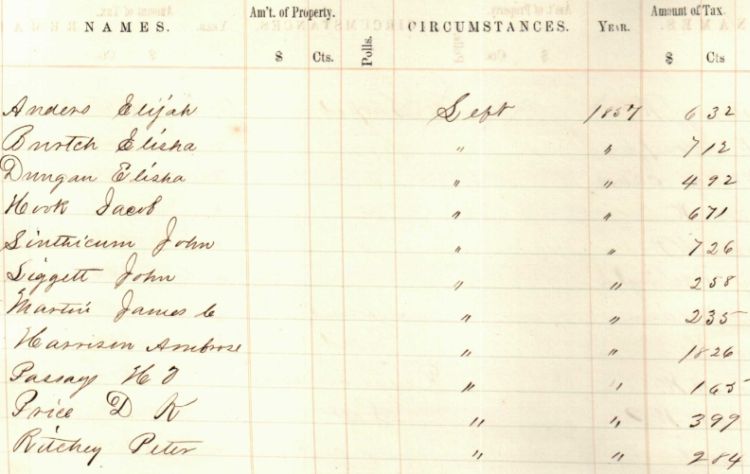 Am't. of Property. Amount of Tax
NAMES. Polls. CIRCUMSTANCES. YEAR.
$ Cts. $ Cts
Anders Elijah Left 1857 6 32
Burtch Elisha " " 7 12
Dungan Elisha " " 4 92
Hook Jacob " " 6 71
Linthicum John " " 7 26
Liggett John " " 2 58
Martin James C " " 2 35
Harrison Ambrose " " 18 26
Passay H " " 1 65
Price D K " " 3 99
Ritchey Peter " " 2 84